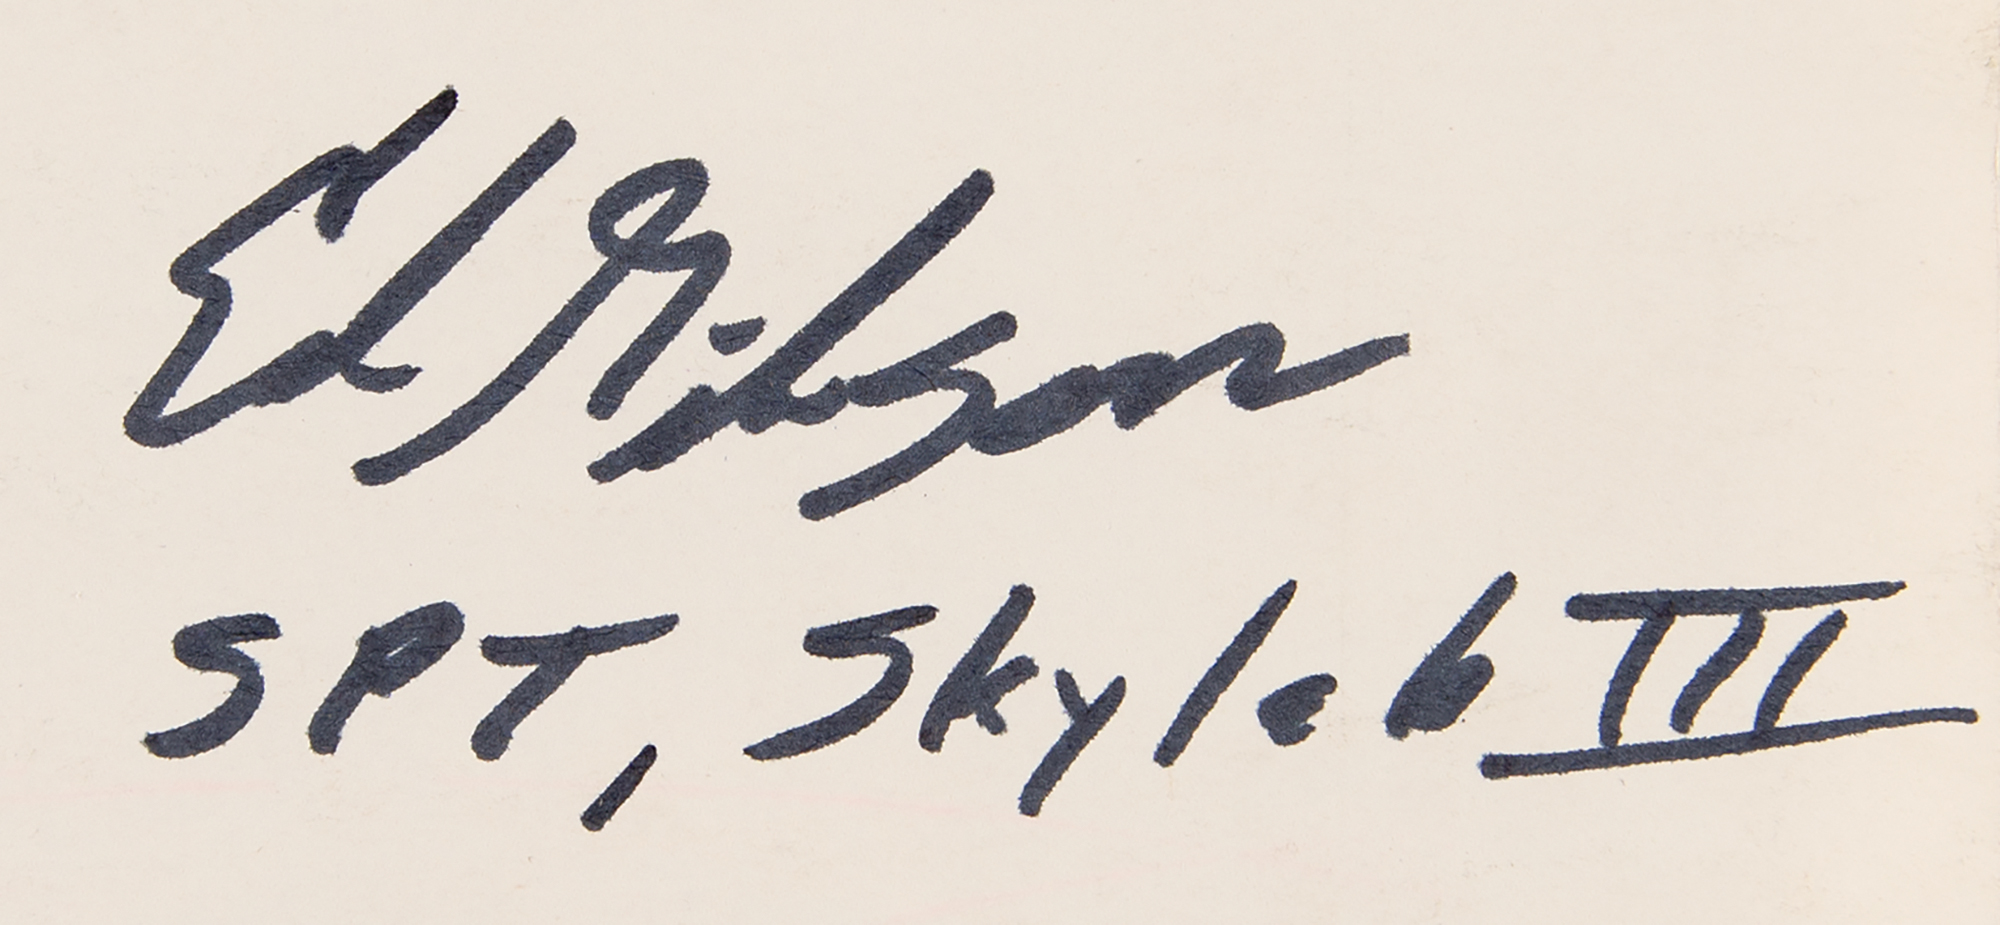 Ed Gibson
SPT, Skylab III